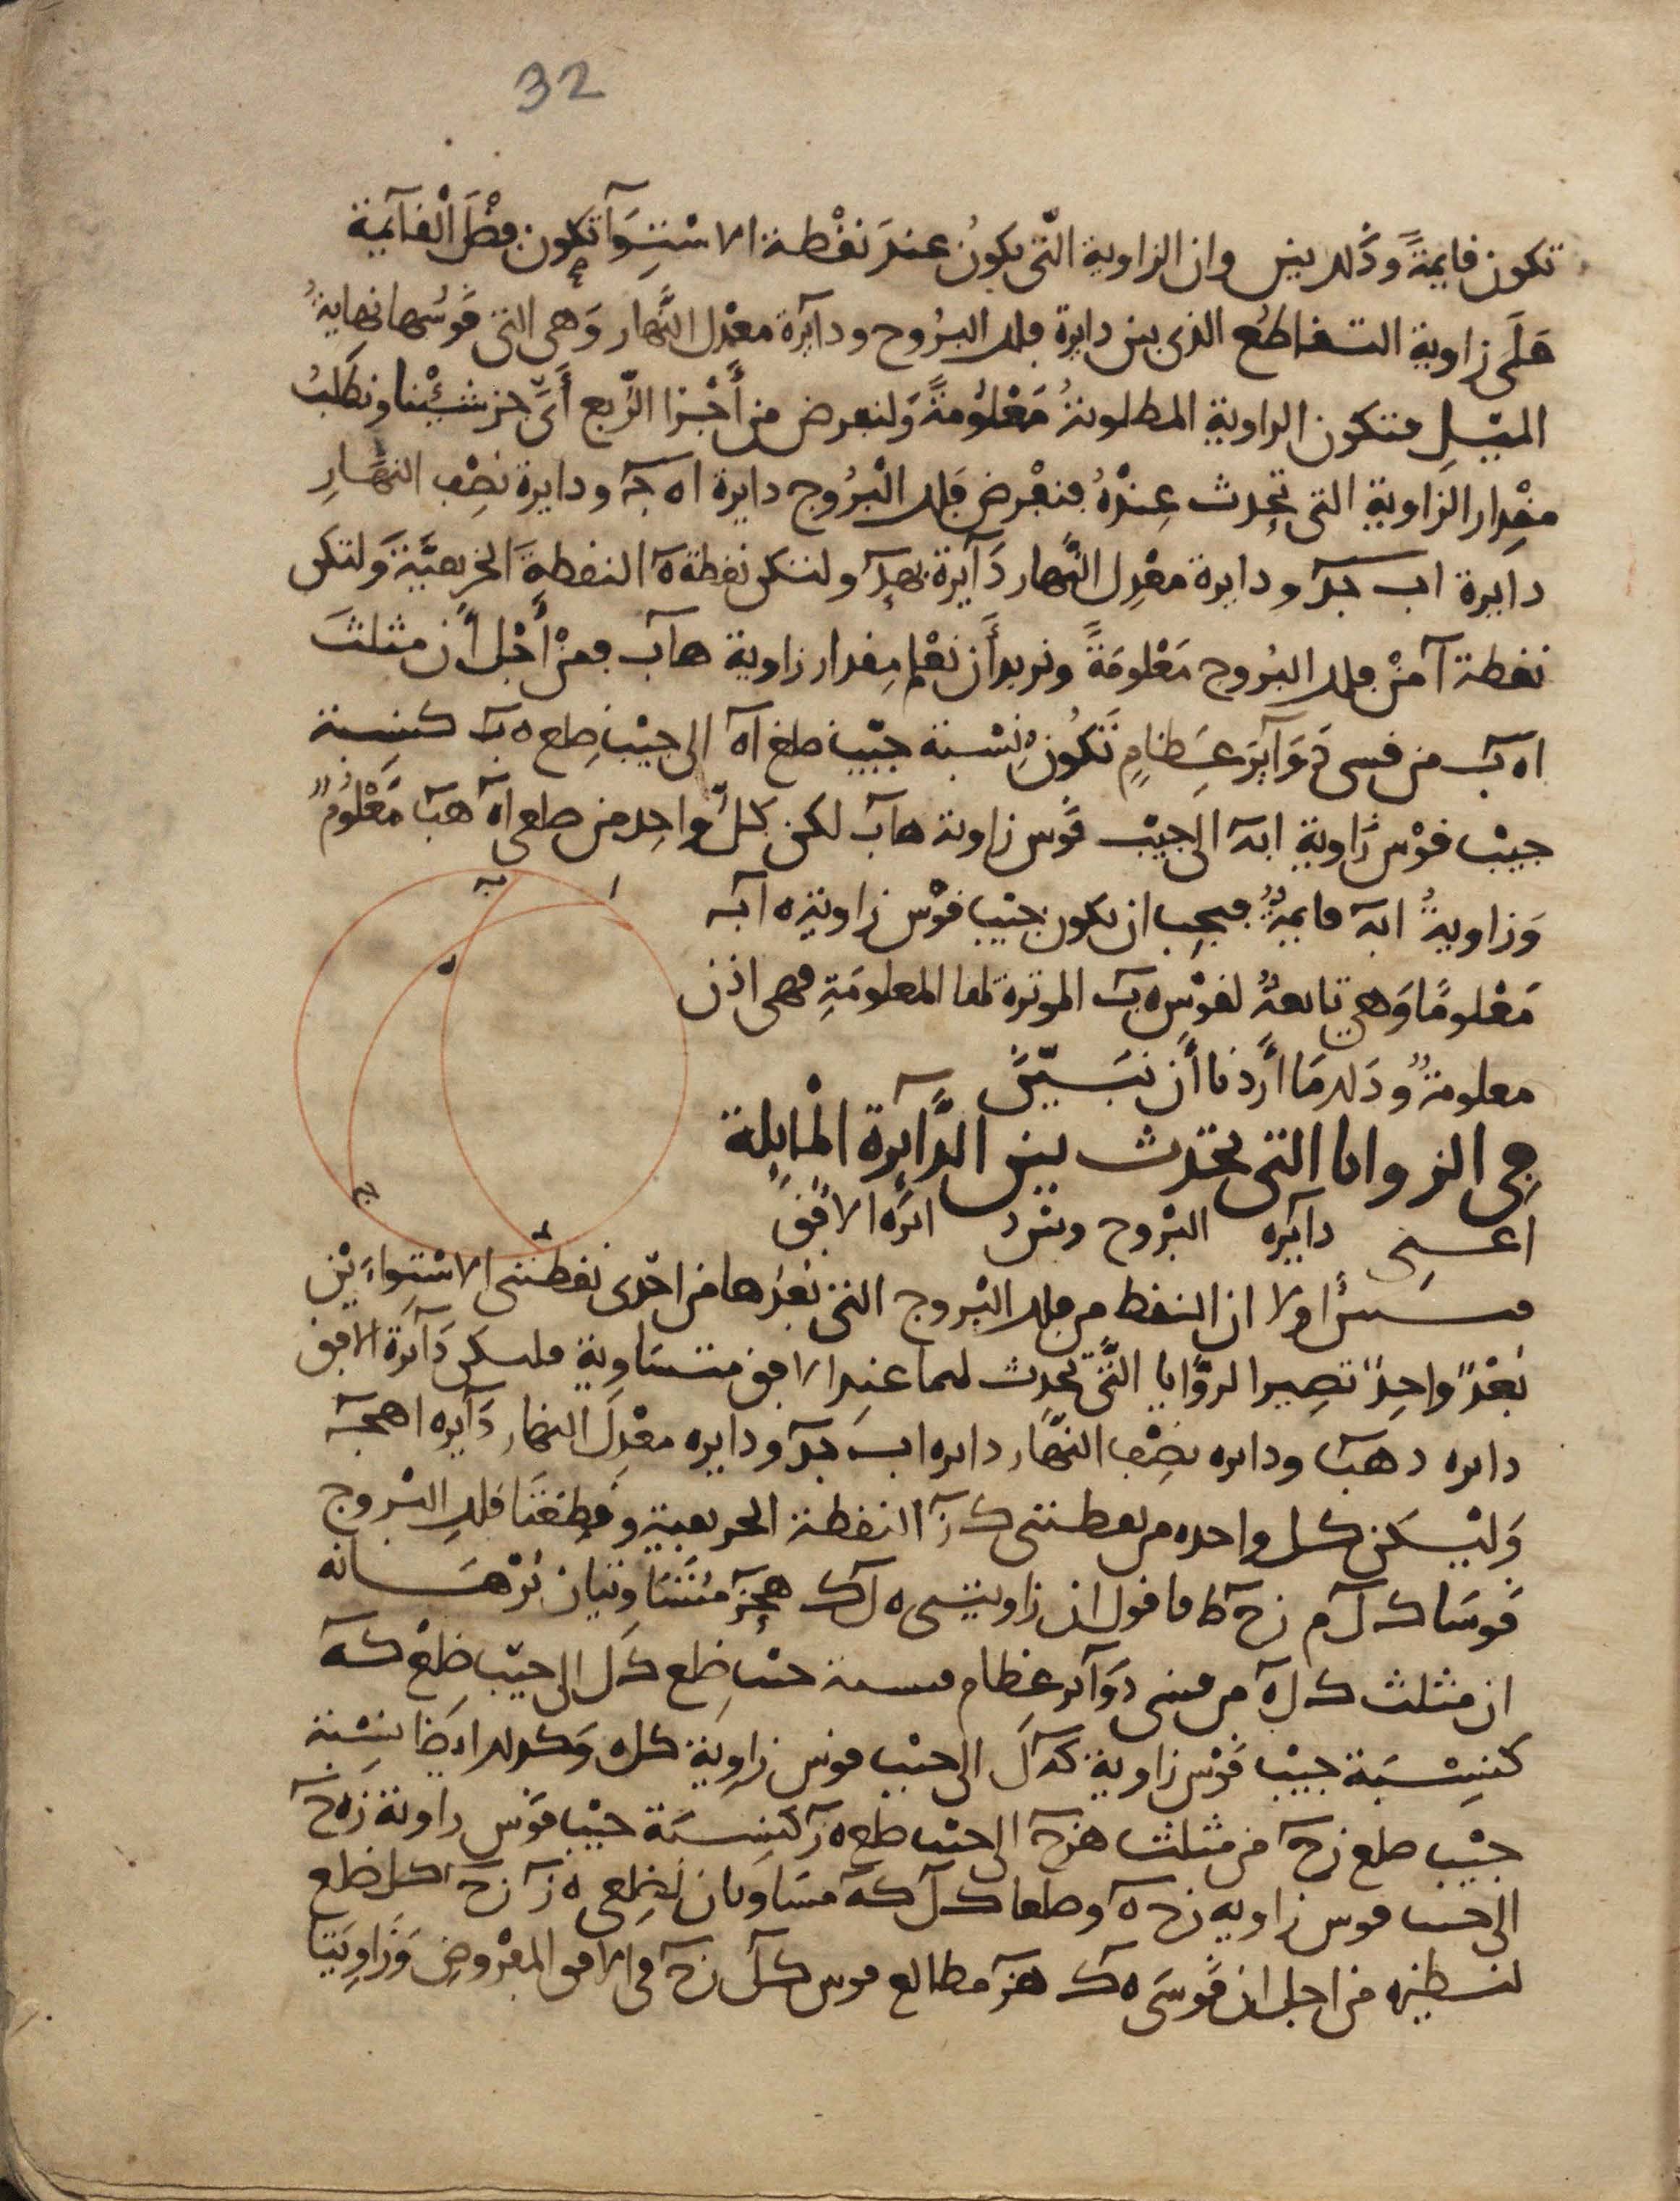 32
تكون قايمةً وذلك بين وان الزاوية التى يكون عند نقطة الاستوآ تكون فضل القآيمة
على زاوية التقاطع الذى بين دايرة فلك البروج ودآيرة معدل النهار وهى التى قوسها نهاية
الميل فتكون الزاوية المطلوبة معلومةً ولنفرض من أجزا الربع أىّ جز شئنا ونطلب
مقدار الزاوية التى تحدث عنده فنفرض فلك البروج دايرة اه جد ودايرة نصف النهار
دايرة اب جد ودايرة معدل النهار دآيرة بهد ولتكن نقطة ه النقطة الخريفية ولتكن
نقطة آ من فلك البروج معلومةً ونريد أن نعلم مقدار زاوية هاب فمن أجل أن مثلث
اه ب من قسى دوآير عظام تكون نسبة جيب ضلع اه الى جيب ضلع ه ب كنسبة
جيب قوس زاوية ابه الى جيب قوس زاوية هاب لكن كل واحد من ضلعى اه هب معلوم
وزاوية ابه قايمة فيجب ان يكون جيب قوس زاوية ه اب
معلومًا وهى تابعة لقوس ه ب الموترة لها المعلومة فهى اذن
معلومة وذلك ما أردنا أن نبين
ا
ب
ه
ج
د
فى الزوايا التى تحدث بين الدآيرة المايلة
اعنى دآيره البروج وبين دايرة الافق
فنبين اولا ان النقط من فلك البروج التى بعدها من احدى نقطتى الاستواءين
بعد واحد تصير الزوايا التى تحدث لهما عند الافق متساوية فليكن دآيرة الافق
دايره د هب ودايره نصف النهار دايره اب جد ودايره معدل النهار دآيره اهج
وليكن كل واحده من نقطتى ك ز النقطة الخريفية وقطعتا فلك البروج
قوسا ك ل م زح ط فاقول ان زاويتى ه ل ك هحز متساويتان برهانه
ان مثلث ك ل ه من قسى دوآير عظام فنسبة جيب ضلع ك ل الى جيب ضلع كه
كنسبة جيب قوس زاوية كه ل الى جيب قوس زاوية كل ه وكذلك ايضا نسبة
جيب ضلع زح من مثلث هزح الى جيب ضلع ه ز كنسبة جيب قوس زاوية زه ح
الى جيب قوس زاويه زح ه وضلعا ك ل كه مساويان لضلعى ه ز زح كل ضلع
لنظيره من اجل ان قوسى ه ك هز مطالع قوس ك ل زح فى الافق المفروض وزاويتا